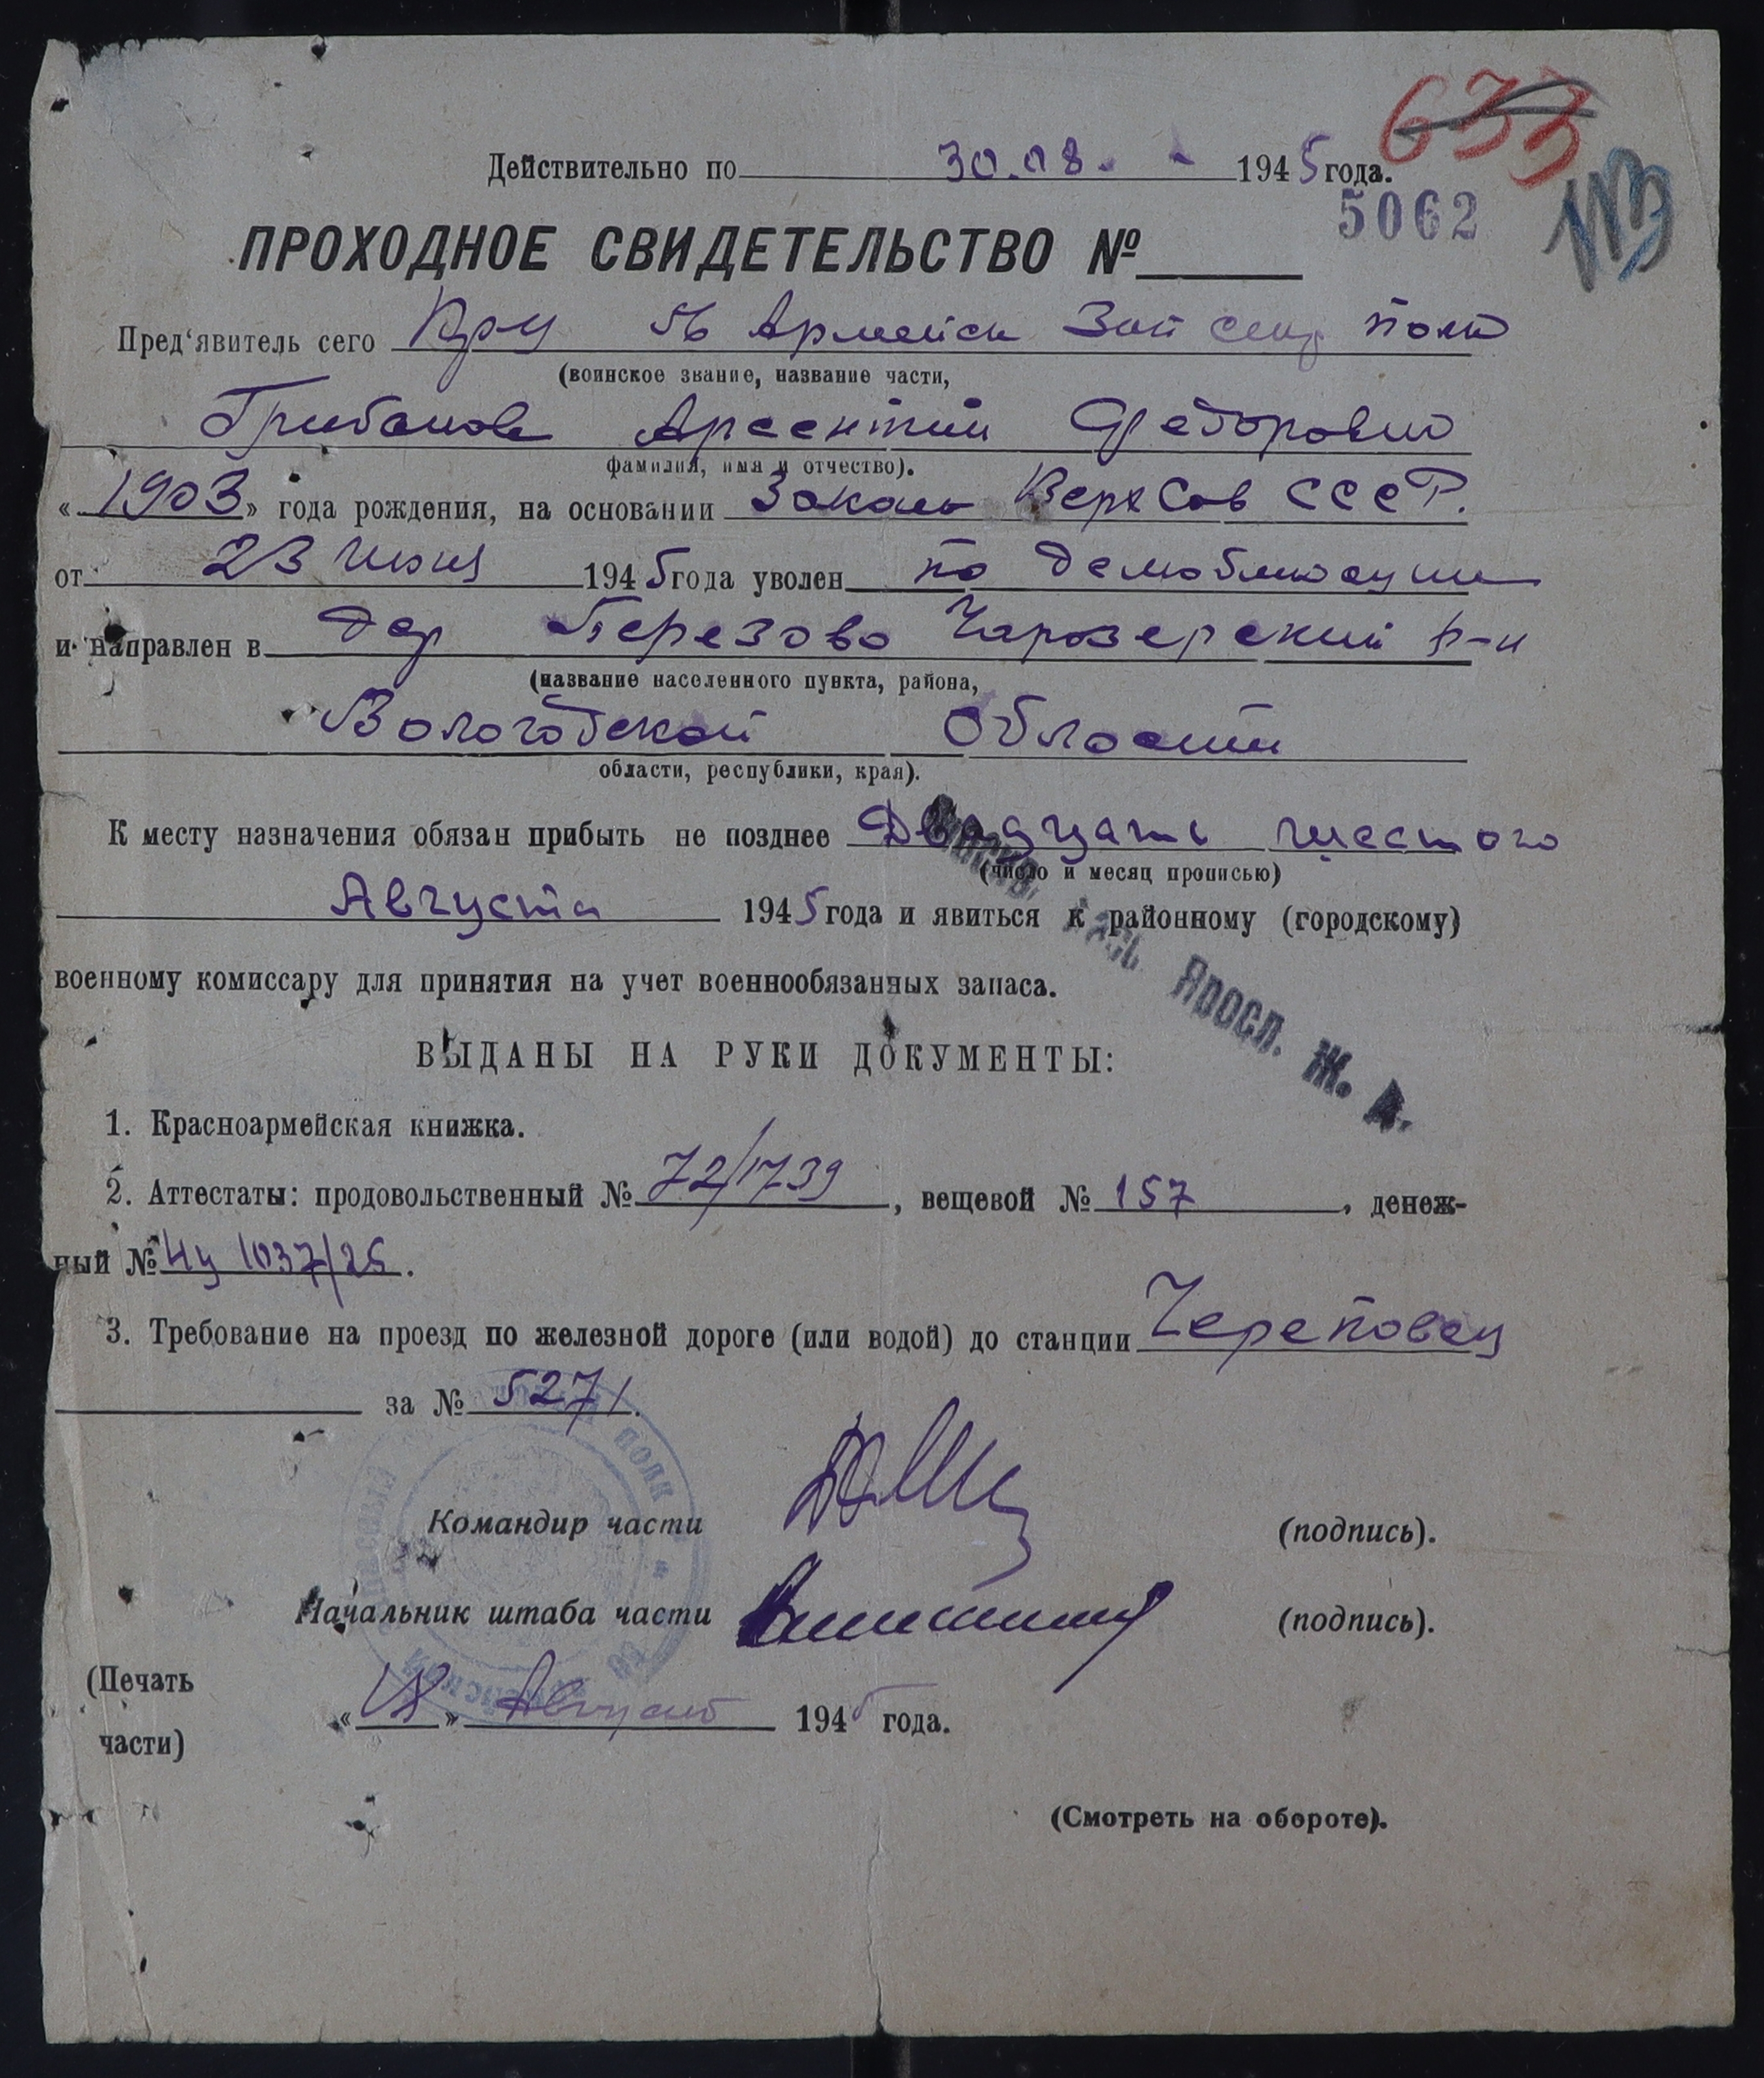 633
Действительно по 30.08. 1945 года.
5062
113
ПРОХОДНОЕ СВИДЕТЕЛЬСТВО №
Пред'явитель сего Кр-ц 56 Армейск Зап стр полк
(воинское звание, название части,
Грибанов Арсентий Федорович
фамилия, имя и отчество).
«1903» года рождения, на основании Закона Верх Сов СССР.
от 23 июня 1945 года уволен по демобилизации
и направлен в дер Березово Чарозерский р-н
(название населенного пункта, района,
Вологодской области
области, республики, края).
К месту назначения обязан прибыть не позднее Двадцать шестого
(число и месяц прописью)
Августа 1945 года и явиться к районному (городскому)
военному комиссару для принятия на учет военнообязанных запаса.
Яросл. Ж. Д.
ВЫДАНЫ НА РУКИ ДОКУМЕНТЫ:
1. Красноармейская книжка.
2. Аттестаты: продовольственный № 72/1739, вещевой № 157, денеж-
ный № 1037/26.
3. Требование на проезд по железной дороге (или водой) до станции Череповец
за № 5271.
Командир части (подпись).
Начальник штаба части (подпись).
(Печать
части)
«18» Август 1945 года.
(Смотреть на обороте).